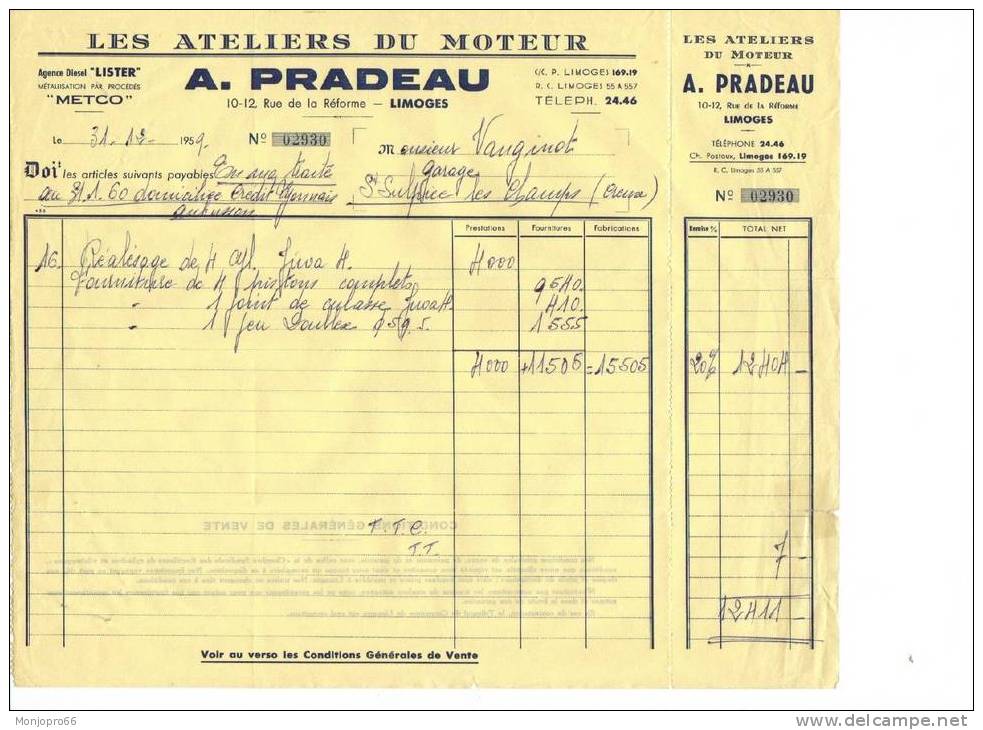 LES ATELIERS DU MOTEUR
Agence Diesel "LISTER"
MÉTALLISATION PAR PROCÉDÉS
"METCO"
A. PRADEAU
10-12, Rue de la Réforme — LIMOGES
C/C. P. LIMOGES 169.19
R. C. LIMOGES 55 A 557
TÉLÉPH. 24.46
Le 31-12- 1959.
No 02930
Monsieur Vauginot
garage
St Sulpice les Champs (Creuse)
Doit les articles suivants payables En ma traite
au 31.1.60 domiciliée Crédit Lyonnais
Aubusson
Prestations Fournitures Fabrications
16. Réalésage de 4 cyl. Juva 4. 4000
Fourniture de 4 pistons complets 9540.
" 1 joint de culasse Juva 4. 410.
" 1 jeu 1555
4000 + 11505 = 15505
T.T.C.
T.T.
CONDITIONS GÉNÉRALES DE VENTE
Voir au verso les Conditions Générales de Vente
LES ATELIERS
DU MOTEUR
A. PRADEAU
10-12, Rue de la Réforme
LIMOGES
TÉLÉPHONE 24.46
Ch. Postaux, Limoges 169.19
R. C. Limoges 55 A 557
No 02930
Remise % TOTAL NET
20% 12404 —
7 —
12411 —
Monjopro66
www.delcampe.net